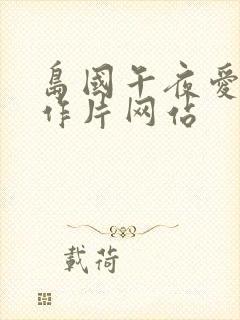 島國午夜愛
作片网佔
載荷